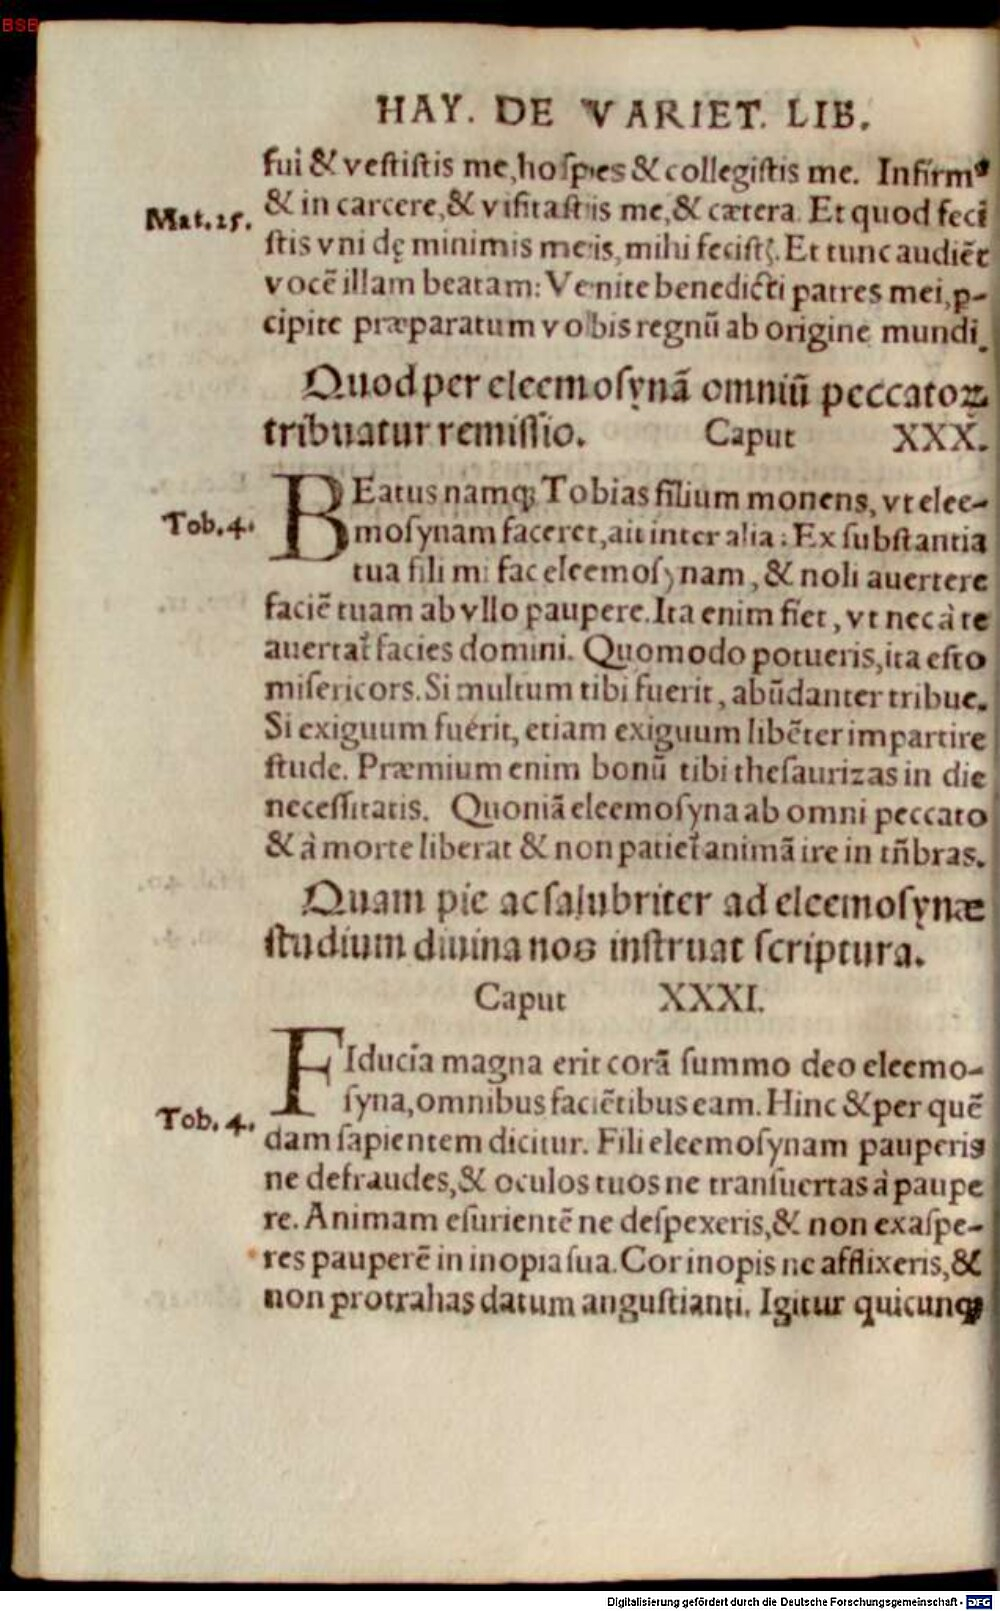 BSB
HAY. DE VARIET. LIB.
fui & vestistis me, hospes & collegistis me. Infirmꝰ
Mat. 25.
& in carcere, & visitastis me, & cætera. Et quod feci
stis vni dę minimis meis, mihi fecistꝭ. Et tunc audiẽt
vocẽ illam beatam: Venite benedicti patres mei, p-
cipite præparatum vobis regnũ ab origine mundi.
Quod per eleemosynã omniũ peccatoꝝ
tribuatur remissio. Caput XXX.
Tob. 4.
BEatus namq; Tobias filium monens, vt elee-
mosynam faceret, ait inter alia: Ex substantia
tua fili mi fac eleemosynam, & noli auertere
faciẽ tuam ab vllo paupere. Ita enim fiet, vt nec à te
auertat̃ facies domini. Quomodo potueris, ita esto
misericors. Si multum tibi fuerit, abũdanter tribue.
Si exiguum fuerit, etiam exiguum libẽter impartire
stude. Præmium enim bonũ tibi thesaurizas in die
necessitatis. Quoniã eleemosyna ab omni peccato
& à morte liberat & non patiet̃ animã ire in tñbras.
Quam pie ac salubriter ad eleemosynæ
studium diuina nos instruat scriptura.
Caput XXXI.
FIducia magna erit corã summo deo eleemo-
syna, omnibus faciẽtibus eam. Hinc & per quẽ
Tob. 4.
dam sapientem dicitur. Fili eleemosynam pauperis
ne defraudes, & oculos tuos ne transuertas à paupe
re. Animam esurientẽ ne despexeris, & non exaspe-
res pauperẽ in inopia sua. Cor inopis ne afflixeris, &
non protrahas datum angustianti. Igitur quicunq;
Digitalisierung gefördert durch die Deutsche Forschungsgemeinschaft - DFG